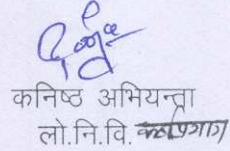 कनिष्ठ अभियन्ता
लो.नि.वि. कर्णप्रयाग